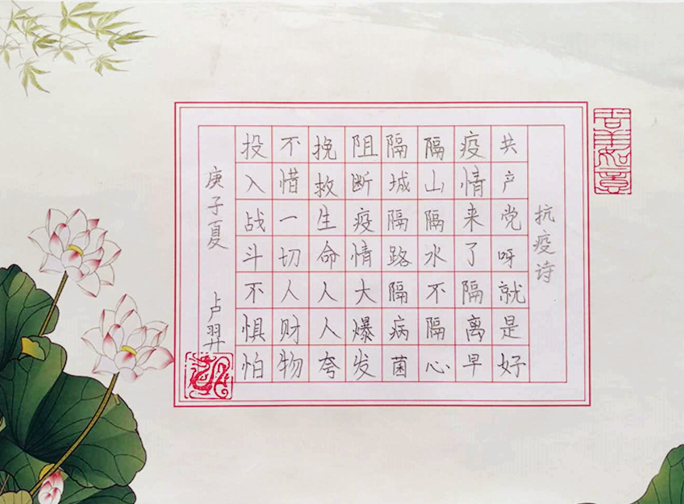 抗疫诗
共产党呀就是好
疫情来了隔离早
隔山隔水不隔心
隔城隔路隔病菌
阻断疫情大爆发
挽救生命人人夸
不惜一切人财物
投入战斗不惧怕
庚子夏 卢羿
吉羊如意